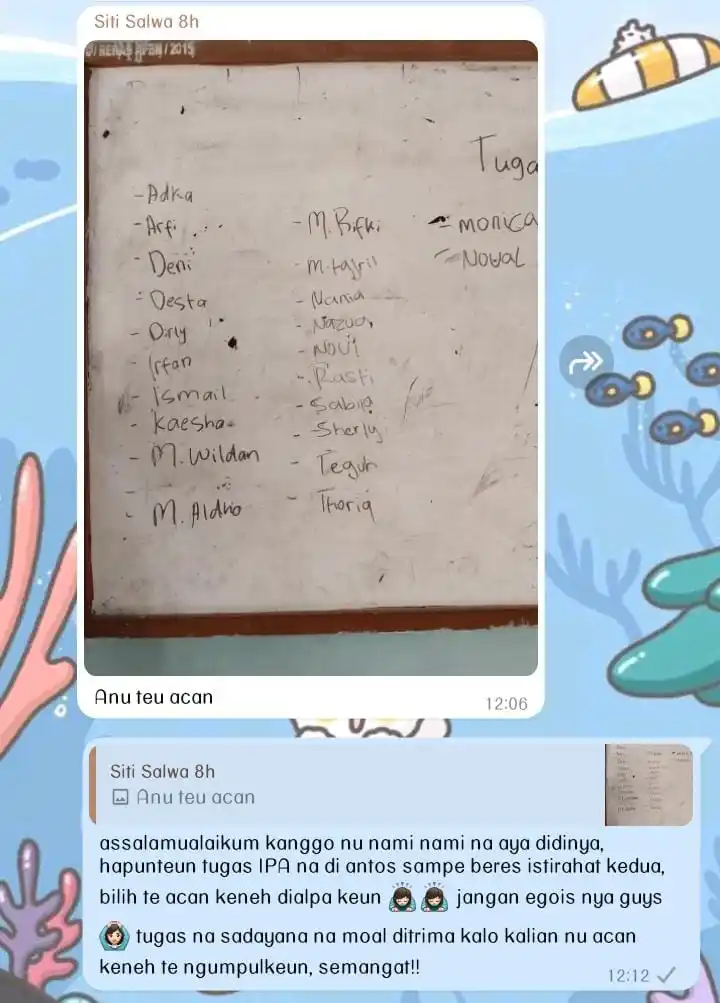 Siti Salwa 8h
/ 2015
Tuga
- Adka
- Arfi
- Deni
- Desta
- Dirly
- Irfan
- Ismail
- Kaesha
- M. Wildan
- M. Aldho
- M. Rifki
- M. fajril
- Nania
- Nazua
- NOVI
- Rasti
- Sabila
- Sherly
- Teguh
- Thoriq
- monica
- NOVAL
Anu teu acan
12:06
Siti Salwa 8h
Anu teu acan
assalamualaikum kanggo nu nami nami na aya didinya,
hapunteun tugas IPA na di antos sampe beres istirahat kedua,
bilih te acan keneh dialpa keun 🙇🏻‍♀️🙇🏻‍♀️ jangan egois nya guys
🙆🏻‍♀️ tugas na sadayana na moal ditrima kalo kalian nu acan
keneh te ngumpulkeun, semangat!!
12:12